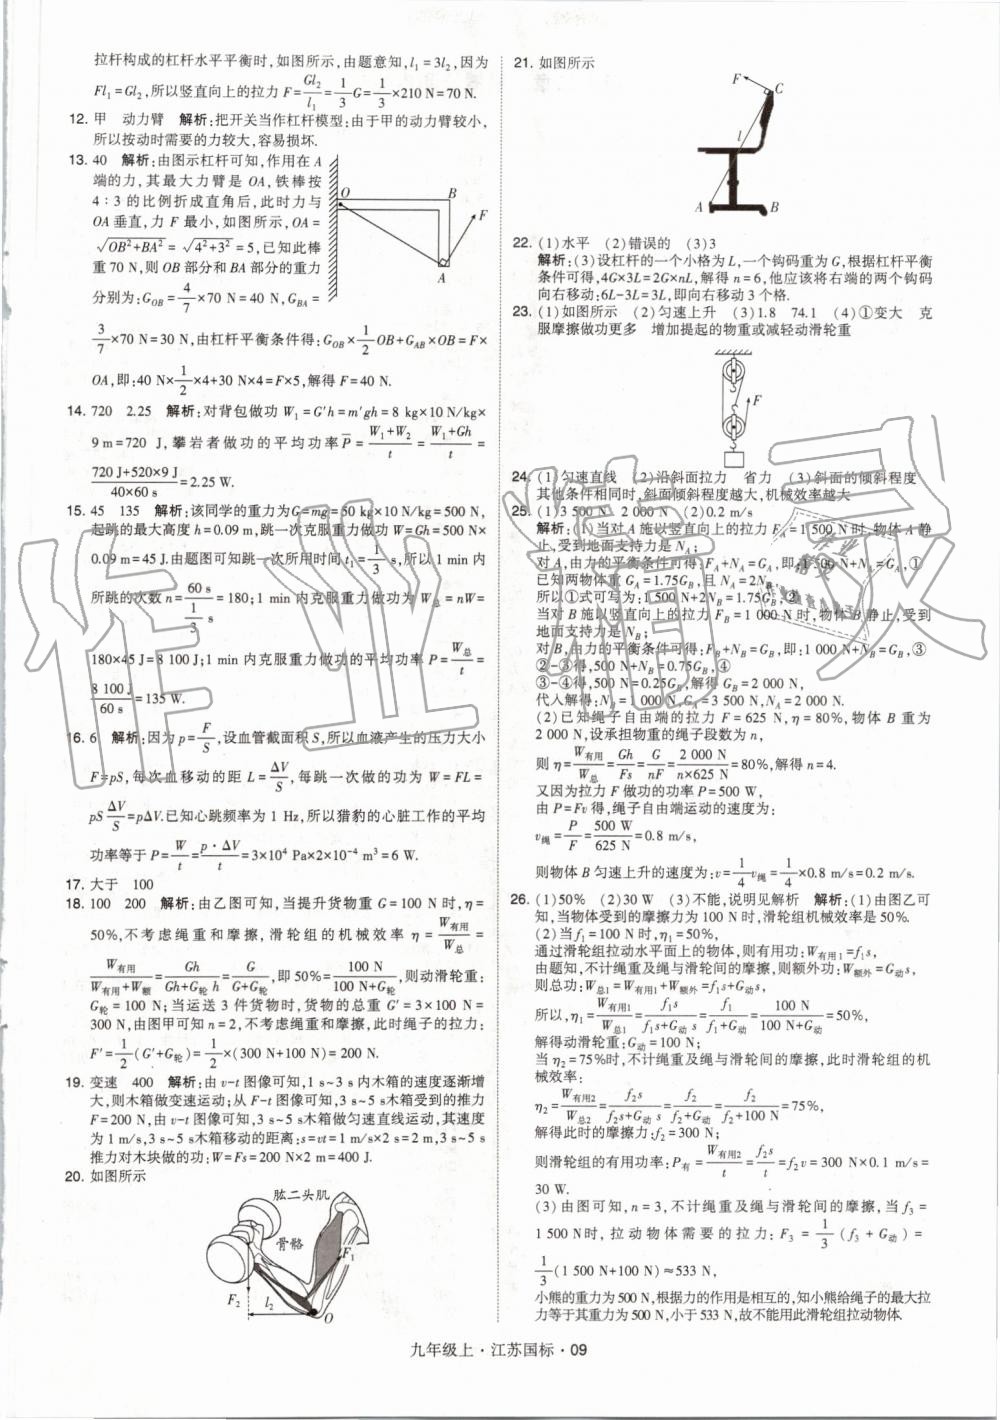 拉杆构成的杠杆水平平衡时,如图所示,由题意知,l₁=3l₂,因为
Fl₁=Gl₂,所以竖直向上的拉力 F=Gl₂/l₁=1/3G=1/3×210 N=70 N.
12. 甲 动力臂 解析:把开关当作杠杆模型:由于甲的动力臂较小,
所以按动时需要的力较大,容易损坏.
13. 40 解析:由图示杠杆可知,作用在 A
端的力,其最大力臂是 OA,铁棒按
4∶3 的比例折成直角后,此时力与
OA 垂直,力 F 最小,如图所示,OA=
√OB²+BA²=√4²+3²=5,已知此棒
重 70 N,则 OB 部分和 BA 部分的重力
分别为:G_OB=4/7×70 N=40 N,G_BA=
3/7×70 N=30 N,由杠杆平衡条件得:G_OB×1/2OB+G_AB×OB=F×
OA,即:40 N×1/2×4+30 N×4=F×5,解得 F=40 N.
O
B
F
A
14. 720 2.25 解析:对背包做功 W₁=G′h=m′gh=8 kg×10 N/kg×
9 m=720 J,攀岩者做功的平均功率 P̅=(W₁+W₂)/t=(W₁+Gh)/t=
(720 J+520×9 J)/(40×60 s)=2.25 W.
15. 45 135 解析:该同学的重力为 G=mg=50 kg×10 N/kg=500 N,
起跳的最大高度 h=0.09 m,跳一次克服重力做功 W=Gh=500 N×
0.09 m=45 J.由题图可知跳一次所用时间 t₁=1/3 s,所以 1 min 内
所跳的次数 n=60 s/(1/3 s)=180;1 min 内克服重力做功为 W总=nW=
180×45 J=8 100 J;1 min 内克服重力做功的平均功率 P=W总/t=
8 100 J/60 s=135 W.
16. 6 解析:因为 p=F/S,设血管截面积 S,所以血液产生的压力大小
F=pS,每次血移动的距 L=ΔV/S,每跳一次做的功 W=FL=
pS ΔV/S=pΔV.已知心跳频率为 1 Hz,所以猎豹的心脏工作的平均
功率等于 P=W/t=p·ΔV/t=3×10⁴ Pa×2×10⁻⁴ m³=6 W.
17. 大于 100
18. 100 200 解析:由乙图可知,当提升货物重 G=100 N 时,η=
50%,不考虑绳重和摩擦,滑轮组的机械效率 η=W有用/W总=
W有用/(W有用+W额)=Gh/(Gh+G轮 h)=G/(G+G轮),即 50%=100 N/(100 N+G轮),则动滑轮重:
G轮=100 N;当运送 3 件货物时,货物的总重 G′=3×100 N=
300 N,由图甲可知 n=2,不考虑绳重和摩擦,此时绳子的拉力:
F′=1/2(G′+G轮)=1/2×(300 N+100 N)=200 N.
19. 变速 400 解析:由 v-t 图像可知,1 s~3 s 内木箱的速度逐渐增
大,则木箱做变速运动;从 F-t 图像可知,3 s~5 s 木箱受到的推力
F=200 N,由 v-t 图像可知,3 s~5 s 木箱做匀速直线运动,其速度
为 1 m/s,3 s~5 s 木箱移动的距离:s=vt=1 m/s×2 s=2 m,3 s~5 s
推力对木块做的功:W=Fs=200 N×2 m=400 J.
20. 如图所示
肱二头肌
骨骼
F₁
F₂
l₂
O
21. 如图所示
F
C
l
A
B
22. (1)水平 (2)错误的 (3)3
解析:(3)设杠杆的一个小格为 L,一个钩码重为 G,根据杠杆平衡
条件可得,4G×3L=2G×nL,解得 n=6,他应该将右端的两个钩码
向右移动:6L-3L=3L,即向右移动 3 个格.
23. (1)如图所示 (2)匀速上升 (3)1.8 74.1 (4)①变大 克
服摩擦做功更多 增加提起的物重或减轻动滑轮重
F
24. (1)匀速直线 (2)沿斜面拉力 省力 (3)斜面的倾斜程度
其他条件相同时,斜面倾斜程度越大,机械效率越大
25. (1)3 500 N 2 000 N (2)0.2 m/s
解析:(1)当对 A 施以竖直向上的拉力 F_A=1 500 N时,物体 A 静
止,受到地面支持力是 N_A;
对 A,由力的平衡条件可得:F_A+N_A=G_A,即:1 500 N+N_A=G_A,①
已知两物体重 G_A=1.75G_B,且 N_A=2N_B,
所以①式可写为:1 500 N+2N_B=1.75G_B,②
当对 B 施以竖直向上的拉力 F_B=1 000 N时,物体 B 静止,受到
地面支持力是 N_B;
对 B,由力的平衡条件可得:F_B+N_B=G_B,即:1 000 N+N_B=G_B,③
②-③得,500 N+N_B=0.75G_B,④
③-④得,500 N=0.25G_B,解得 G_B=2 000 N,
代入解得:N_B=1 000 N,G_A=3 500 N,N_A=2 000 N.
(2)已知绳子自由端的拉力 F=625 N,η=80%,物体 B 重为
2 000 N,设承担物重的绳子段数为 n,
则 η=W有用/W总=Gh/Fs=G/nF=2 000 N/(n×625 N)=80%,解得 n=4.
又因为拉力 F 做功的功率 P=500 W,
由 P=Fv 得,绳子自由端运动的速度为:
v绳=P/F=500 W/625 N=0.8 m/s,
则物体 B 匀速上升的速度为:v=1/4v绳=1/4×0.8 m/s=0.2 m/s.
26. (1)50% (2)30 W (3)不能,说明见解析 解析:(1)由图乙可
知,当物体受到的摩擦力为 100 N 时,滑轮组机械效率是 50%.
(2)当 f₁=100 N时,η₁=50%,
通过滑轮组拉动水平面上的物体,则有用功:W有用1=f₁s,
由题知,不计绳重及绳与滑轮间的摩擦,则额外功:W额外=G动s,
则总功:W总1=W有用1+W额外=f₁s+G动s,
所以,η₁=W有用1/W总1=f₁s/(f₁s+G动 s)=f₁/(f₁+G动)=100 N/(100 N+G动)=50%,
解得动滑轮重:G动=100 N;
当 η₂=75%时,不计绳重及绳与滑轮间的摩擦,此时滑轮组的机
械效率:
η₂=W有用2/W总2=f₂s/(f₂s+G动 s)=f₂/(f₂+G动)=f₂/(f₂+100 N)=75%,
解得此时的摩擦力:f₂=300 N;
则滑轮组的有用功率:P有=W有用2/t=f₂s/t=f₂v=300 N×0.1 m/s=
30 W.
(3)由图可知,n=3,不计绳重及绳与滑轮间的摩擦,当 f₃=
1 500 N时,拉动物体需要的拉力:F₃=1/3(f₃+G动)=
1/3(1 500 N+100 N)≈533 N,
小熊的重力为 500 N,根据力的作用是相互的,知小熊给绳子的最大拉
力等于其重力为 500 N,小于 533 N,故不能用此滑轮组拉动物体.
九年级上·江苏国标·09
作业精灵